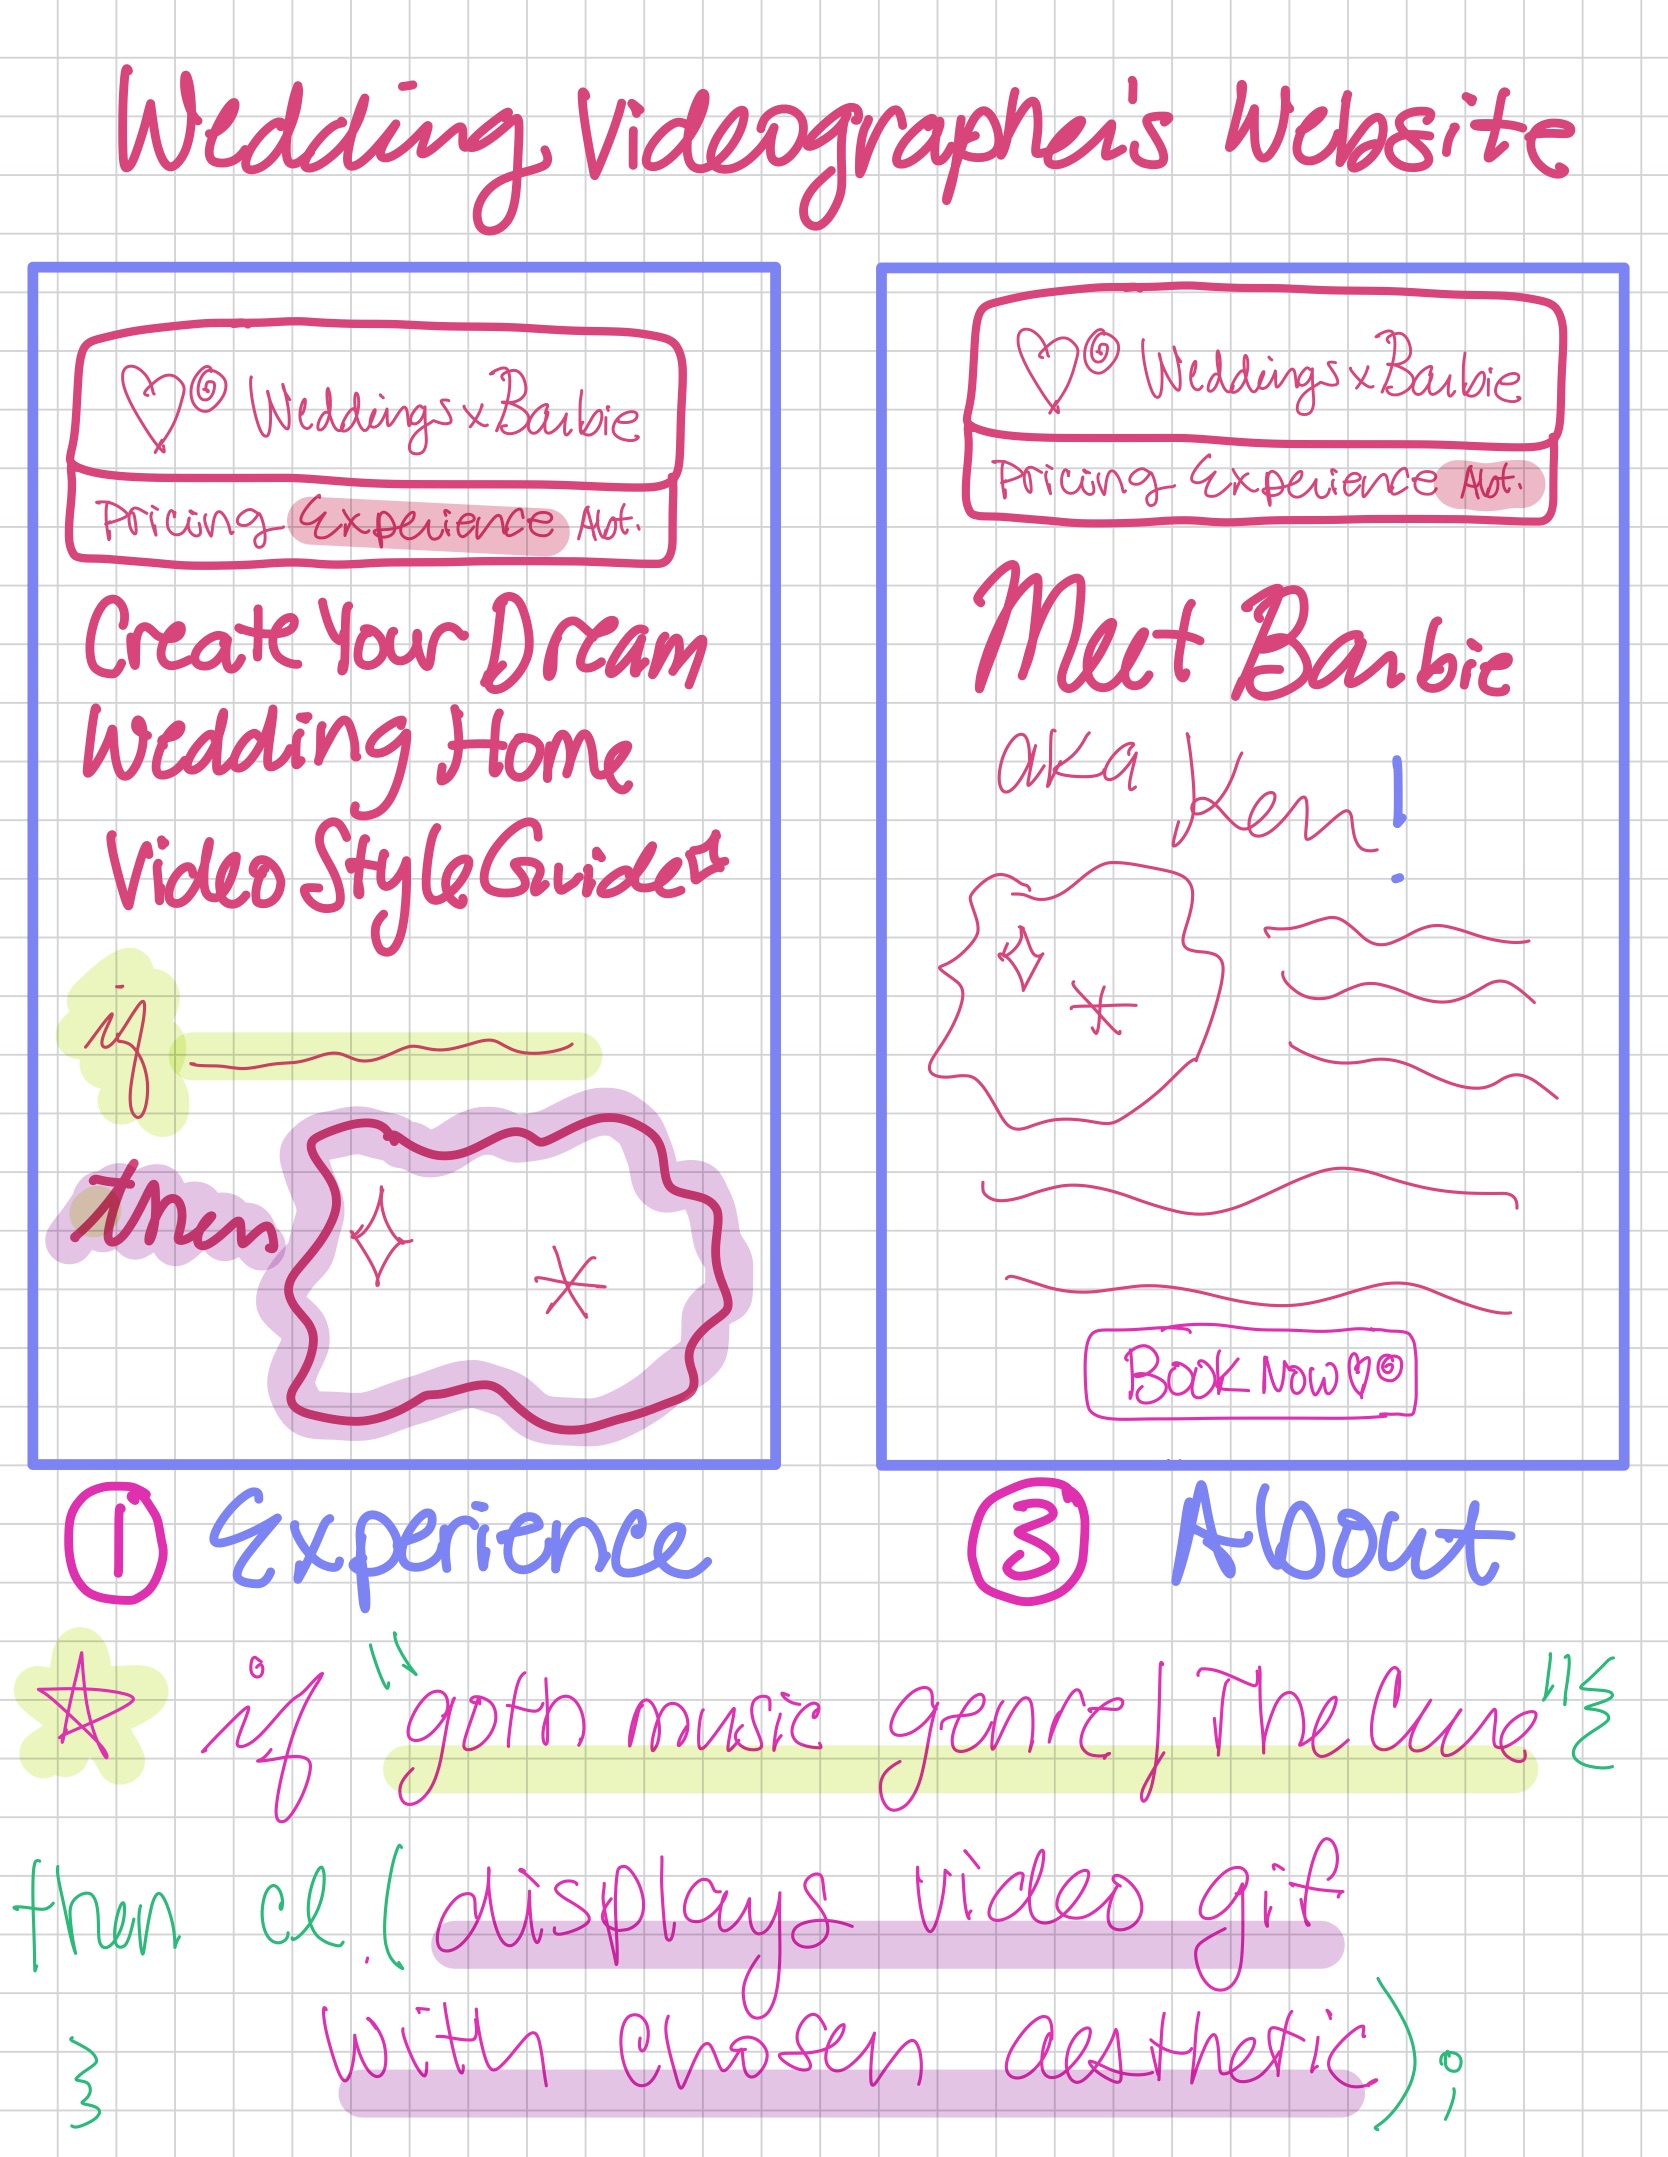 Wedding Videographer's Website
Weddings x Barbie
Pricing Experience Abt.
Create Your Dream
Wedding Home
Video Style Guide
if
then
① Experience
Weddings x Barbie
Pricing Experience Abt.
Meet Barbie
aka Ken!
BOOK NOW
③ About
if "goth music genre / The Cure" {
then cl.(displays video gif
with chosen aesthetic);
}